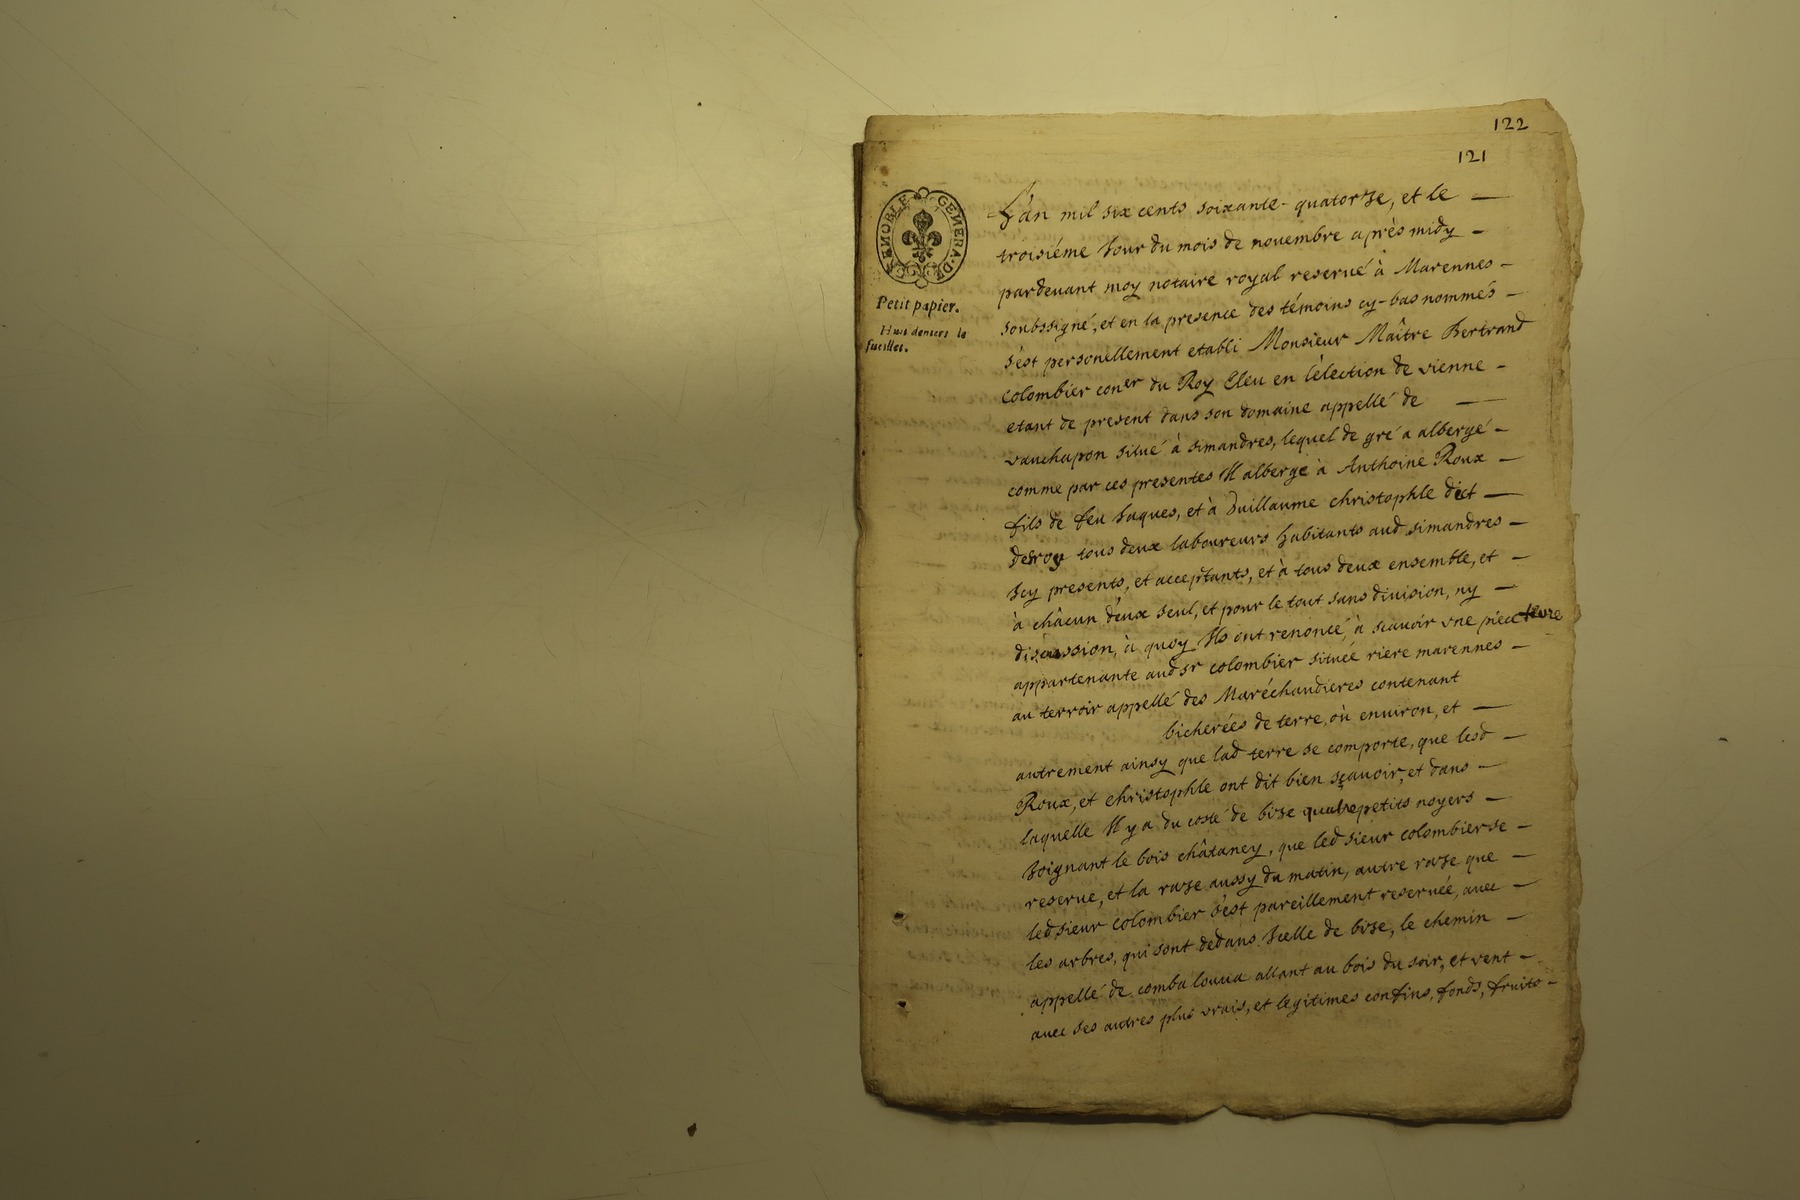 122
121
GRENOBLE GENERA. DE
Petit papier.
Huit deniers le
fueillet.
L'an mil six cents soixante-quatorze, et le
troisiéme Jour du mois de novembre après midy
pardevant moy notaire royal reservé à Marennes
soubssigné, et en la presence des témoins cy-bas nommés
s'est personellement etabli Monsieur Maître Bertrand
Colombier coner du Roy Eleu en l'election de vienne
etant de present dans son domaine appellé de
vauchapon situé à simandres, lequel de gré a albergé
comme par ces presentes Il alberge à Anthoine Roux
fils de feu Jaques, et à Guillaume christophle dict
deroy tous deux laboureurs habitants aud simandres
Icy presents, et acceptants, et à tous deux ensemble, et
à châcun d'eux seul, et pour le tout sans division, ny
discussion, à quoy Ils ont renoncé, à scavoir une piéce terre
appartenante aud sr colombier située riere marennes
au terroir appellé des Maréchaudieres contenant
bicherées de terre, où environ, et
autrement ainsy que lad terre se comporte, que lesd
Roux, et christophle ont dit bien sçavoir, et dans
laquelle Il y a du costé de bize quatre petits noyers
Joignant le bois châtaney, que led sieur colombier se
reserve, et la raze aussy du matin, autre raze que
led sieur colombier s'est pareillement reservée, avec
les arbres, qui sont dedans Icelle de bize, le chemin
appellé de comba louva allant au bois du soir, et vent
avec ses autres plus vrais, et legitimes confins, fonds, fruits